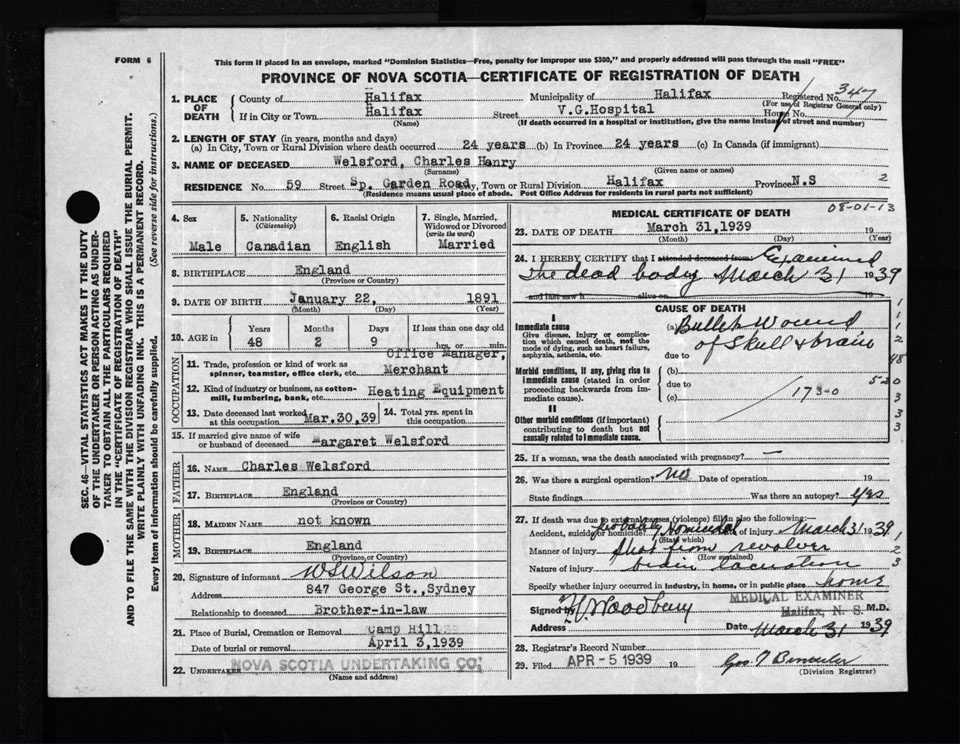 FORM 6
This form if placed in an envelope, marked "Dominion Statistics—Free, penalty for improper use $300," and properly addressed will pass through the mail "FREE"
PROVINCE OF NOVA SCOTIA—CERTIFICATE OF REGISTRATION OF DEATH
1. PLACE OF DEATH County of Halifax Municipality of Halifax Registered No. 347
(For use of Registrar General only)
If in City or Town Halifax Street V.G.Hospital House No.
(Name) (If death occurred in a hospital or institution, give the name instead of street and number)
2. LENGTH OF STAY (in years, months and days)
(a) In City, Town or Rural Division where death occurred 24 years (b) In Province 24 years (c) In Canada (if immigrant)
3. NAME OF DECEASED Welsford, Charles Henry
(Surname) (Given name or names)
RESIDENCE No. 59 Street Sp. Garden Road City, Town or Rural Division Halifax Province N.S 2
(Residence means usual place of abode. Post Office Address for residents in rural parts not sufficient)
4. Sex Male
5. Nationality (Citizenship) Canadian
6. Racial Origin English
7. Single, Married, Widowed or Divorced (write the word) Married
8. BIRTHPLACE England
(Province or Country)
9. DATE OF BIRTH January 22, 1891
(Month) (Day) (Year)
10. AGE in Years Months Days If less than one day old
48 2 9 hrs. or min.
OCCUPATION
11. Trade, profession or kind of work as spinner, teamster, office clerk, etc. Office Manager, Merchant
12. Kind of industry or business, as cotton-mill, lumbering, bank, etc. Heating Equipment
13. Date deceased last worked at this occupation Mar.30,39
14. Total yrs. spent in this occupation
15. If married give name of wife or husband of deceased Margaret Welsford
FATHER
16. NAME Charles Welsford
17. BIRTHPLACE England
(Province or Country)
MOTHER
18. MAIDEN NAME not known
19. BIRTHPLACE England
(Province, or Country)
20. Signature of informant WSWilson
Address 847 George St., Sydney
Relationship to deceased Brother-in-law
21. Place of Burial, Cremation or Removal Camp Hill
Date of burial or removal April 3,1939
22. UNDERTAKER NOVA SCOTIA UNDERTAKING CO.
(Name and address)
MEDICAL CERTIFICATE OF DEATH 08-01-13
23. DATE OF DEATH March 31,1939 19
(Month) (Day) (Year)
24. I HEREBY CERTIFY that I attended deceased from Examined
the dead body March 31 1939
and last saw h alive on 19
CAUSE OF DEATH
I
Immediate cause
Give disease, injury or complication which caused death, not the mode of dying, such as heart failure, asphyxia, asthenia, etc.
(a) Bullet Wound
of Skull & brain
due to
Morbid conditions, if any, giving rise to immediate cause (stated in order proceeding backwards from immediate cause).
(b)
due to
(c) 173-0
II
Other morbid conditions (if important) contributing to death but not causally related to immediate cause.
1
1
2
48
520
3
3
3
25. If a woman, was the death associated with pregnancy? —
26. Was there a surgical operation? No Date of operation 19
State findings Was there an autopsy? Yes
27. If death was due to external causes (violence) fill in also the following:
Accident, suicide or homicide? Probably Homicidal Date of injury March 31 1939
(State which)
Manner of injury Shot from revolver
(How sustained)
Nature of injury brain laceration
1
2
3
Specify whether injury occurred in industry, in home, or in public place home
MEDICAL EXAMINER
Signed by H. Woodbury Halifax, N. S. M.D.
Address Date March 31 1939
28. Registrar's Record Number
29. Filed APR -5 1939 19
(Division Registrar)
SEC. 46—VITAL STATISTICS ACT MAKES IT THE DUTY
OF THE UNDERTAKER OR PERSON ACTING AS UNDER-
TAKER TO OBTAIN ALL THE PARTICULARS REQUIRED
IN THE "CERTIFICATE OF DEATH"
AND TO FILE THE SAME WITH THE DIVISION REGISTRAR WHO SHALL ISSUE THE BURIAL PERMIT.
WRITE PLAINLY WITH UNFADING INK. THIS IS A PERMANENT RECORD.
Every item of information should be carefully supplied. (See reverse side for instructions.)